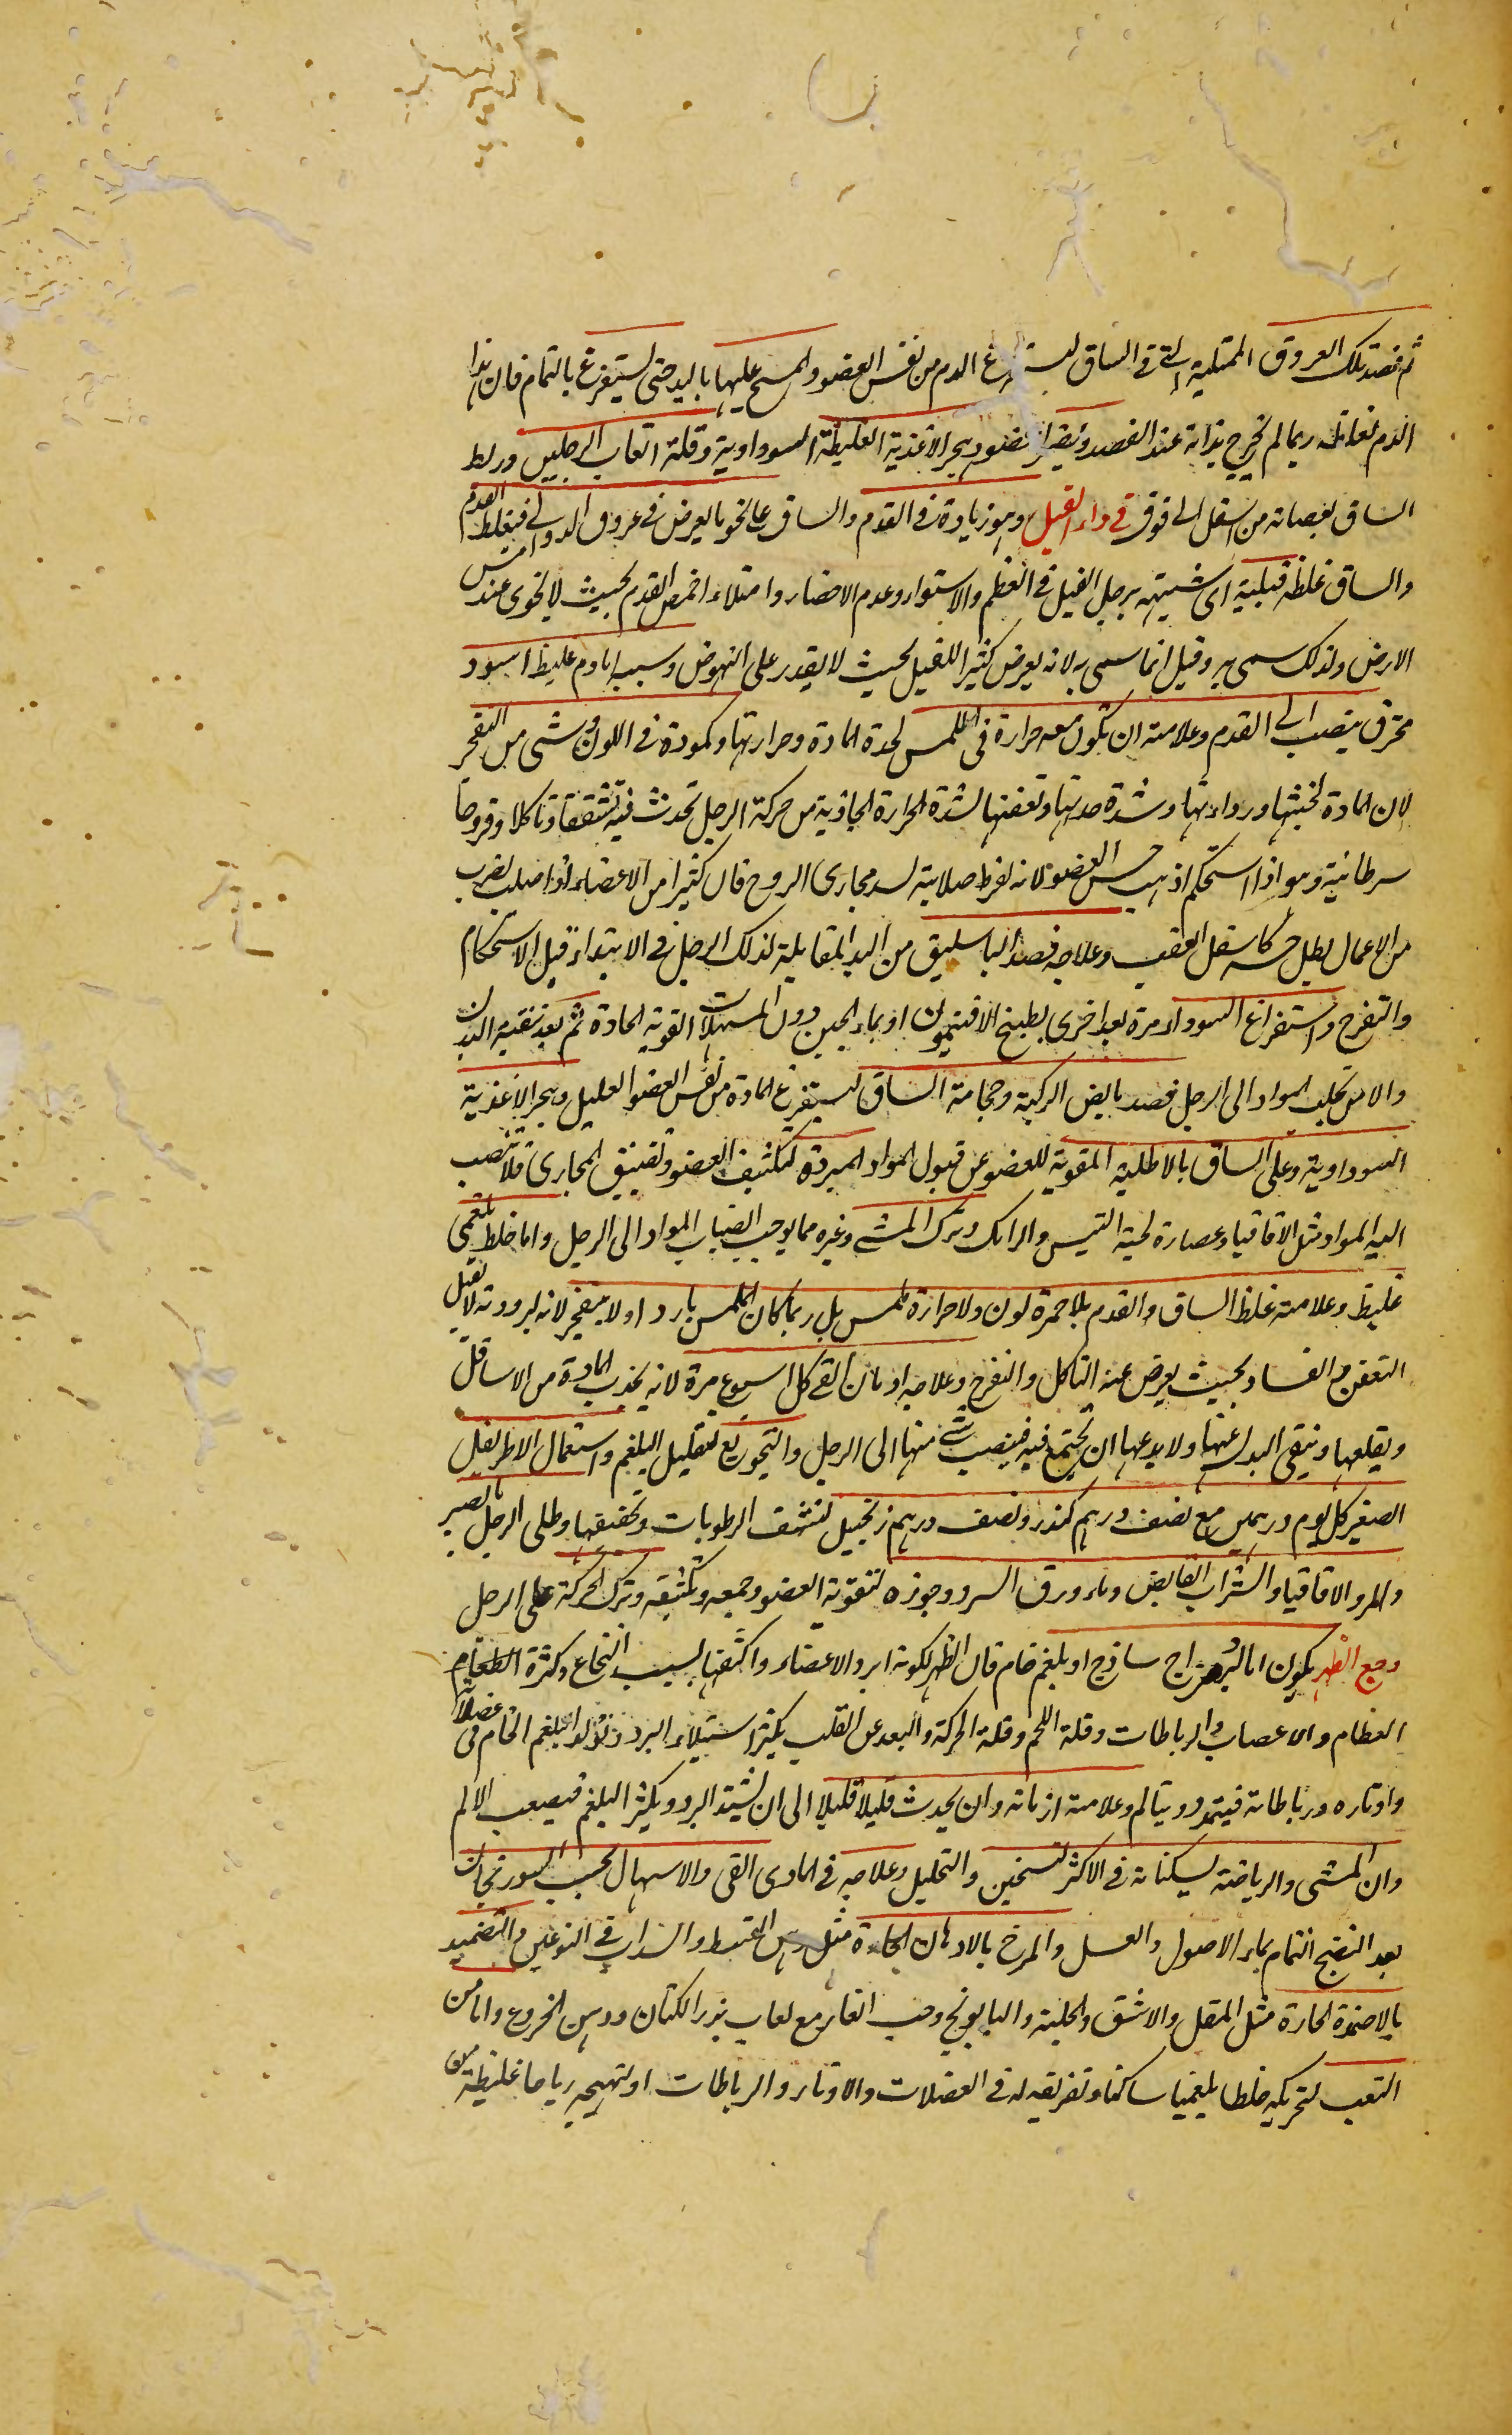 ثم فصد تلك العروق الممتلية التي في الساق ليستفرغ الدم من نفس العضو والمسح عليها باليد حتى يستفرغ بالتمام فان هذا
الدم لغلظه ربما لم يخرج بذاته عند الفصد وهجر الاغذية الغليظة السوداوية وقلة اتعاب الرجلين وربط
الساق بعصابة من اسفل الى فوق في داء الفيل وهو زيادة في القدم والساق على نحو ما يعرض في عروق الدوالي فيغلظ القدم
والساق غلظة فيلية اى شبيهة برجل الفيل في العظم والاستواء وعدم الانحصار وامتلاء اخمص القدم بحيث لا يخوى عند مس
الارض ولذلك سمى به وقيل انما سمى به لانه يعرض كثيرا للفيل بحيث لا يقدر على النهوض وسببه اما دم غليظ اسود
محترق ينصب الى القدم وعلامته ان يكون معه حرارة في الملمس لحدة المادة وحرارتها وكمودة في اللون وشئ من التقرح
لان المادة لخبثها ورداءتها وشدة حدتها وتعفنها لشدة الحرارة الجاذبة من حركة الرجل تحدث فيه تشققا وتاكلا وقروحا
سرطانية وهو اذا استحكم اذهب حس العضو لانه لفرط صلابته يسد مجارى الروح فان كثيرا من الاعضاء اذا صلب بضرب
من الاعمال بطل حسه كاسفل العقب وعلاجه فصد الباسليق من اليد المقابلة لذلك الرجل في الابتداء قبل الاستحكام
والتقرح واستفراغ السوداء مرة بعد اخرى بطبيخ الافتيمون او بماء الجبن دون المسهلات القوية الحادة ثم بعد تنقية البدن
والامن من تحلب المواد الى الرجل فصد مابض الركبة وحجامة الساق ليستفرغ المادة من نفس العضو العليل وهجر الاغذية
السوداوية وطلى الساق بالاطلية المقوية للعضو عن قبول المواد المبردة لتكثيف العضو وتضييق المجارى فلا تنصب
اليه المواد مثل الاقاقيا وعصارة لحية التيس والرامك وترك المشى وغيره مما يوجب انصباب المواد الى الرجل واما خلط بلغمى
غليظ وعلامته غلظ الساق والقدم بلا حمرة لون ولا حرارة ملمس بل ربما كان الملمس باردا ولا يتقرح لانه لبرودته لا يقبل
التعفن والفساد بحيث يعرض عنه التاكل والتقرح وعلاجه ادمان القى كل اسبوع مرة لانه يجذب المادة من الاسافل
ويقلعها وينقى البدن عنها ولا يدعها ان يجتمع فيه فينصب شئ منها الى الرجل والتجويع لتقليل البلغم واستعمال الاطريفل
الصغير كل يوم درهمين مع نصف درهم كندر ونصف درهم زنجبيل لتنشف الرطوبات وتجفيفها وطلى الرجل بالصبر
والمر والاقاقيا والشراب القابض وماء ورق السرو وجوزه لتقوية العضو وجمعه وتكثيفه وترك الحركة على الرجل
وجع الظهر يكون اما لبرد مزاج ساذج او بلغم خام فان الظهر لكونه ابرد الاعضاء واكثفها بسبب النخاع وكثرة العظام
العظام والاعصاب والرباطات وقلة اللحم وقلة الحركة والبعد عن القلب يكثر استيلاء البرد وتولد البلغم الخام في عضلاته
واوتاره ورباطاته فيتمدد ويتالم وعلامته ازمانه وان يحدث قليلا قليلا الى ان يشتد البرد ويكثر البلغم فيصعب الالم
وان المشى والرياضة يسكنانه في الاكثر لتسخين والتحليل وعلاجه في المادى القى والاسهال بحب السورنجان
بعد النضج التمام بماء الاصول والعسل والمرخ بالادهان الحارة مثل دهن القسط والسداب في النوعين والتضميد
بالاضمدة الحارة مثل المقل والاشق والحلبة والبابونج وحب الغار مع لعاب بزر الكتان ودهن الخروع واما من
التعب لتحريكه خلطا بلغميا ساكنا وتفريقه له في العضلات والاوتار والرباطات او لتهييجه رياحا غليظة من